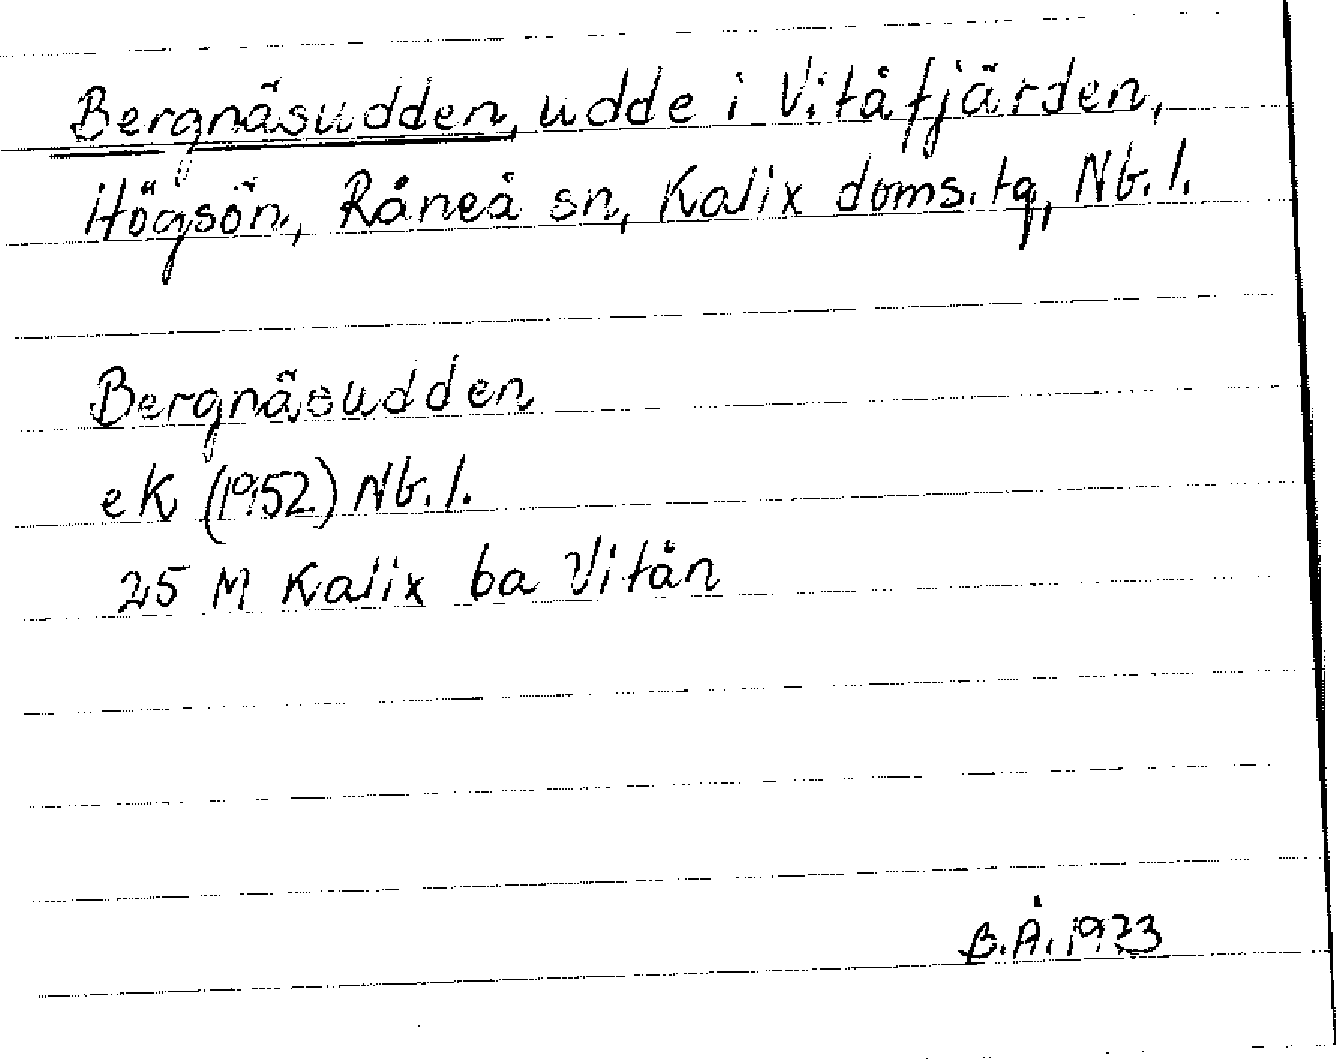 Bergnäsudden, udde i Vitåfjärden,
Högsön, Råneå sn, Kalix doms. tg, Nb. l.
Bergnäsudden
eK (1952) Nb. l.
25 M Kalix ba Vitån
B.Å. 1973